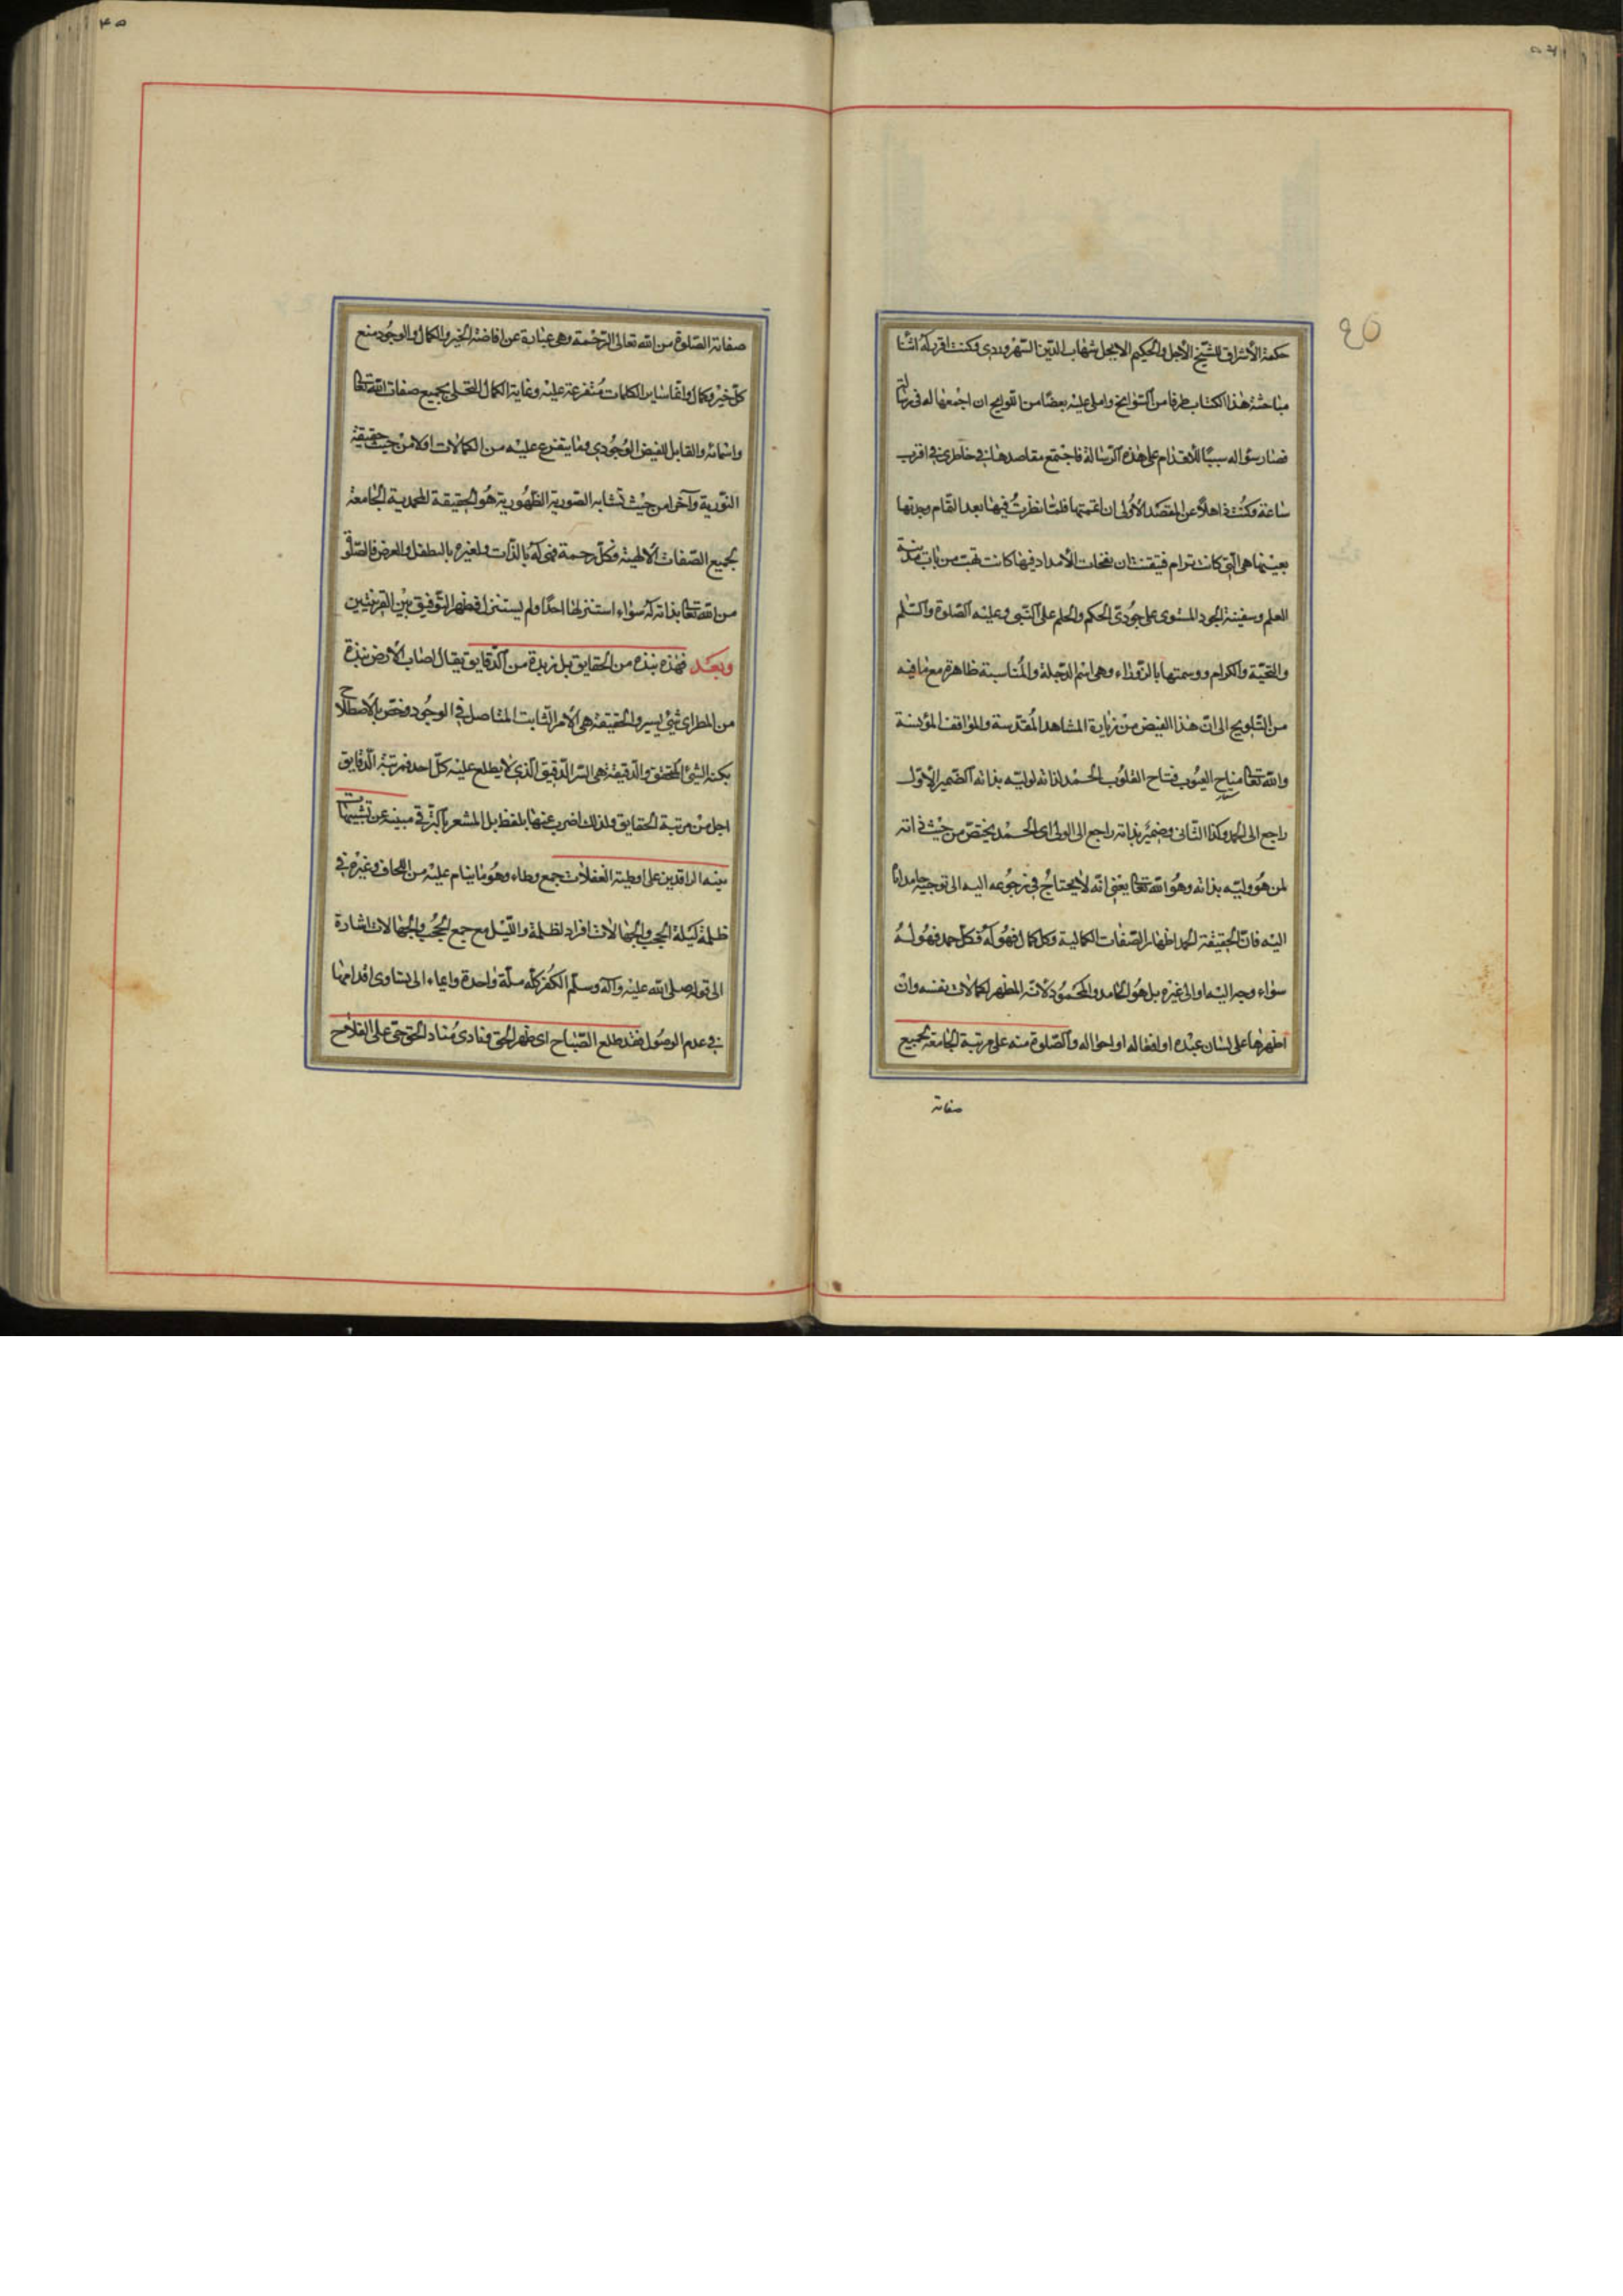 حكمة الأشراق للشيخ الأجل والحكيم الابجل شهاب الدين السهروردى وكنت اقرر له اثنا
مباحثة هذا الكتاب طرفا من السوانح واملى عليه بعضا من اللوايح ان اجمعها له فى رسالة
فصار سؤاله سببا للأقدام على هذه الرسالة فاجتمع مقاصدها فى خاطرى فى اقرب
ساعة وكنت ذاهلا عن المقصد الأولى ان اتممتها فلما نظرت فيها بعد التمام وجدتها
بعينها هى التى كانت ترام فتيقنت ان نفحات الأمداد فيها كانت تهب من باب مدينة
العلم وسفينة الجود المستوى على جودى الحكم والحلم على النبى وعليه الصلوة والسلم
والتحية والاكرام ووسمتها بالزوراء وهى اسم لدجلة والمناسبة ظاهرة مع ما فيه
من التلويح الى ان هذا الفيض من زيارة المشاهد المقدسة والمواقف المؤنسة
والله تعا مناح الغيوب فتاح القلوب الحمد لذاته لوليه بذاته الضمير الأول
راجع الى الحمد وكذا الثانى وضمير بذاته راجع الى الولى اى الحمد يختص من حيث ذاته
لمن هو وليه بذاته وهو الله تعا يعنى انه لا يحتاج فى رجوعه اليه الى توجيه حامد اياه
اليه فان الحقيقة الحمد اظهار الصفات الكمالية وكل كمال فهو له فكل حمد فهو له
سواء وجه اليه او الى غيره بل هو الحامد والمحمود لانه المظهر لكمالات نفسه وان
اظهرها على لسان عبده او افعاله او احواله والصلوة منه على مرتبة الجامعة لجميع
صفاته
صفاته الصلوة من الله تعالى الرحمة وهى عبارة عن افاضة الخير والكمال والوجود منبع
كل خير وكمال واتما ساير الكمالات متفرعة عليه وغاية الكمال التحلى بجميع صفات الله تعا
واسمائه والقابل للفيض الوجودى وما يتفرع عليه من الكمالات اولا من حيث حقيقة
النورية وآخرا من حيث نشأته الصورية الظهورية هو الحقيقة المحمدية الجامعة
لجميع الصفات الالهية فكل رحمة فهى له بالذات ولغيره بالتطفل والعرض فالصلوة
من الله تعا بذاته له سواء استنزلها احد او لم يستنزل فظهر التوفيق بين القرينتين
وبعد فهذه نبذه من الحقايق بل زبدة من الدقايق يقال اصاب الأرض نبذة
من المطر اى شئ يسير والحقيقة هى الأمر الثابت المتاصل فى الوجود وخص بالأصطلاح
بكنه الشئ المحقق والدقيقة هى السر الدقيق الذى لا يطلع عليه كل احد فمرتبة الدقايق
اجل من مرتبة الحقايق ولذلك اضرب عنها بلفظ بل المشعر بالترقى مبينة عن تثبيتها
سينه الراقدين على اوطية الغفلات جمع وطاء وهو ما ينام عليه من اللحاف وغيره فى
ظلمة ليلة الحجب والجهالات افراد لظلمة والليل مع جمع الحجب والجهالات اشارة
الى قوله صلى الله عليه وآله وسلم الكفر كله ملة واحدة وايماء الى تساوى اقدامها
فى عدم الوصول فقد طلع الصباح اى ظهر الحق فنادى مناد الحق حى على الفلاح